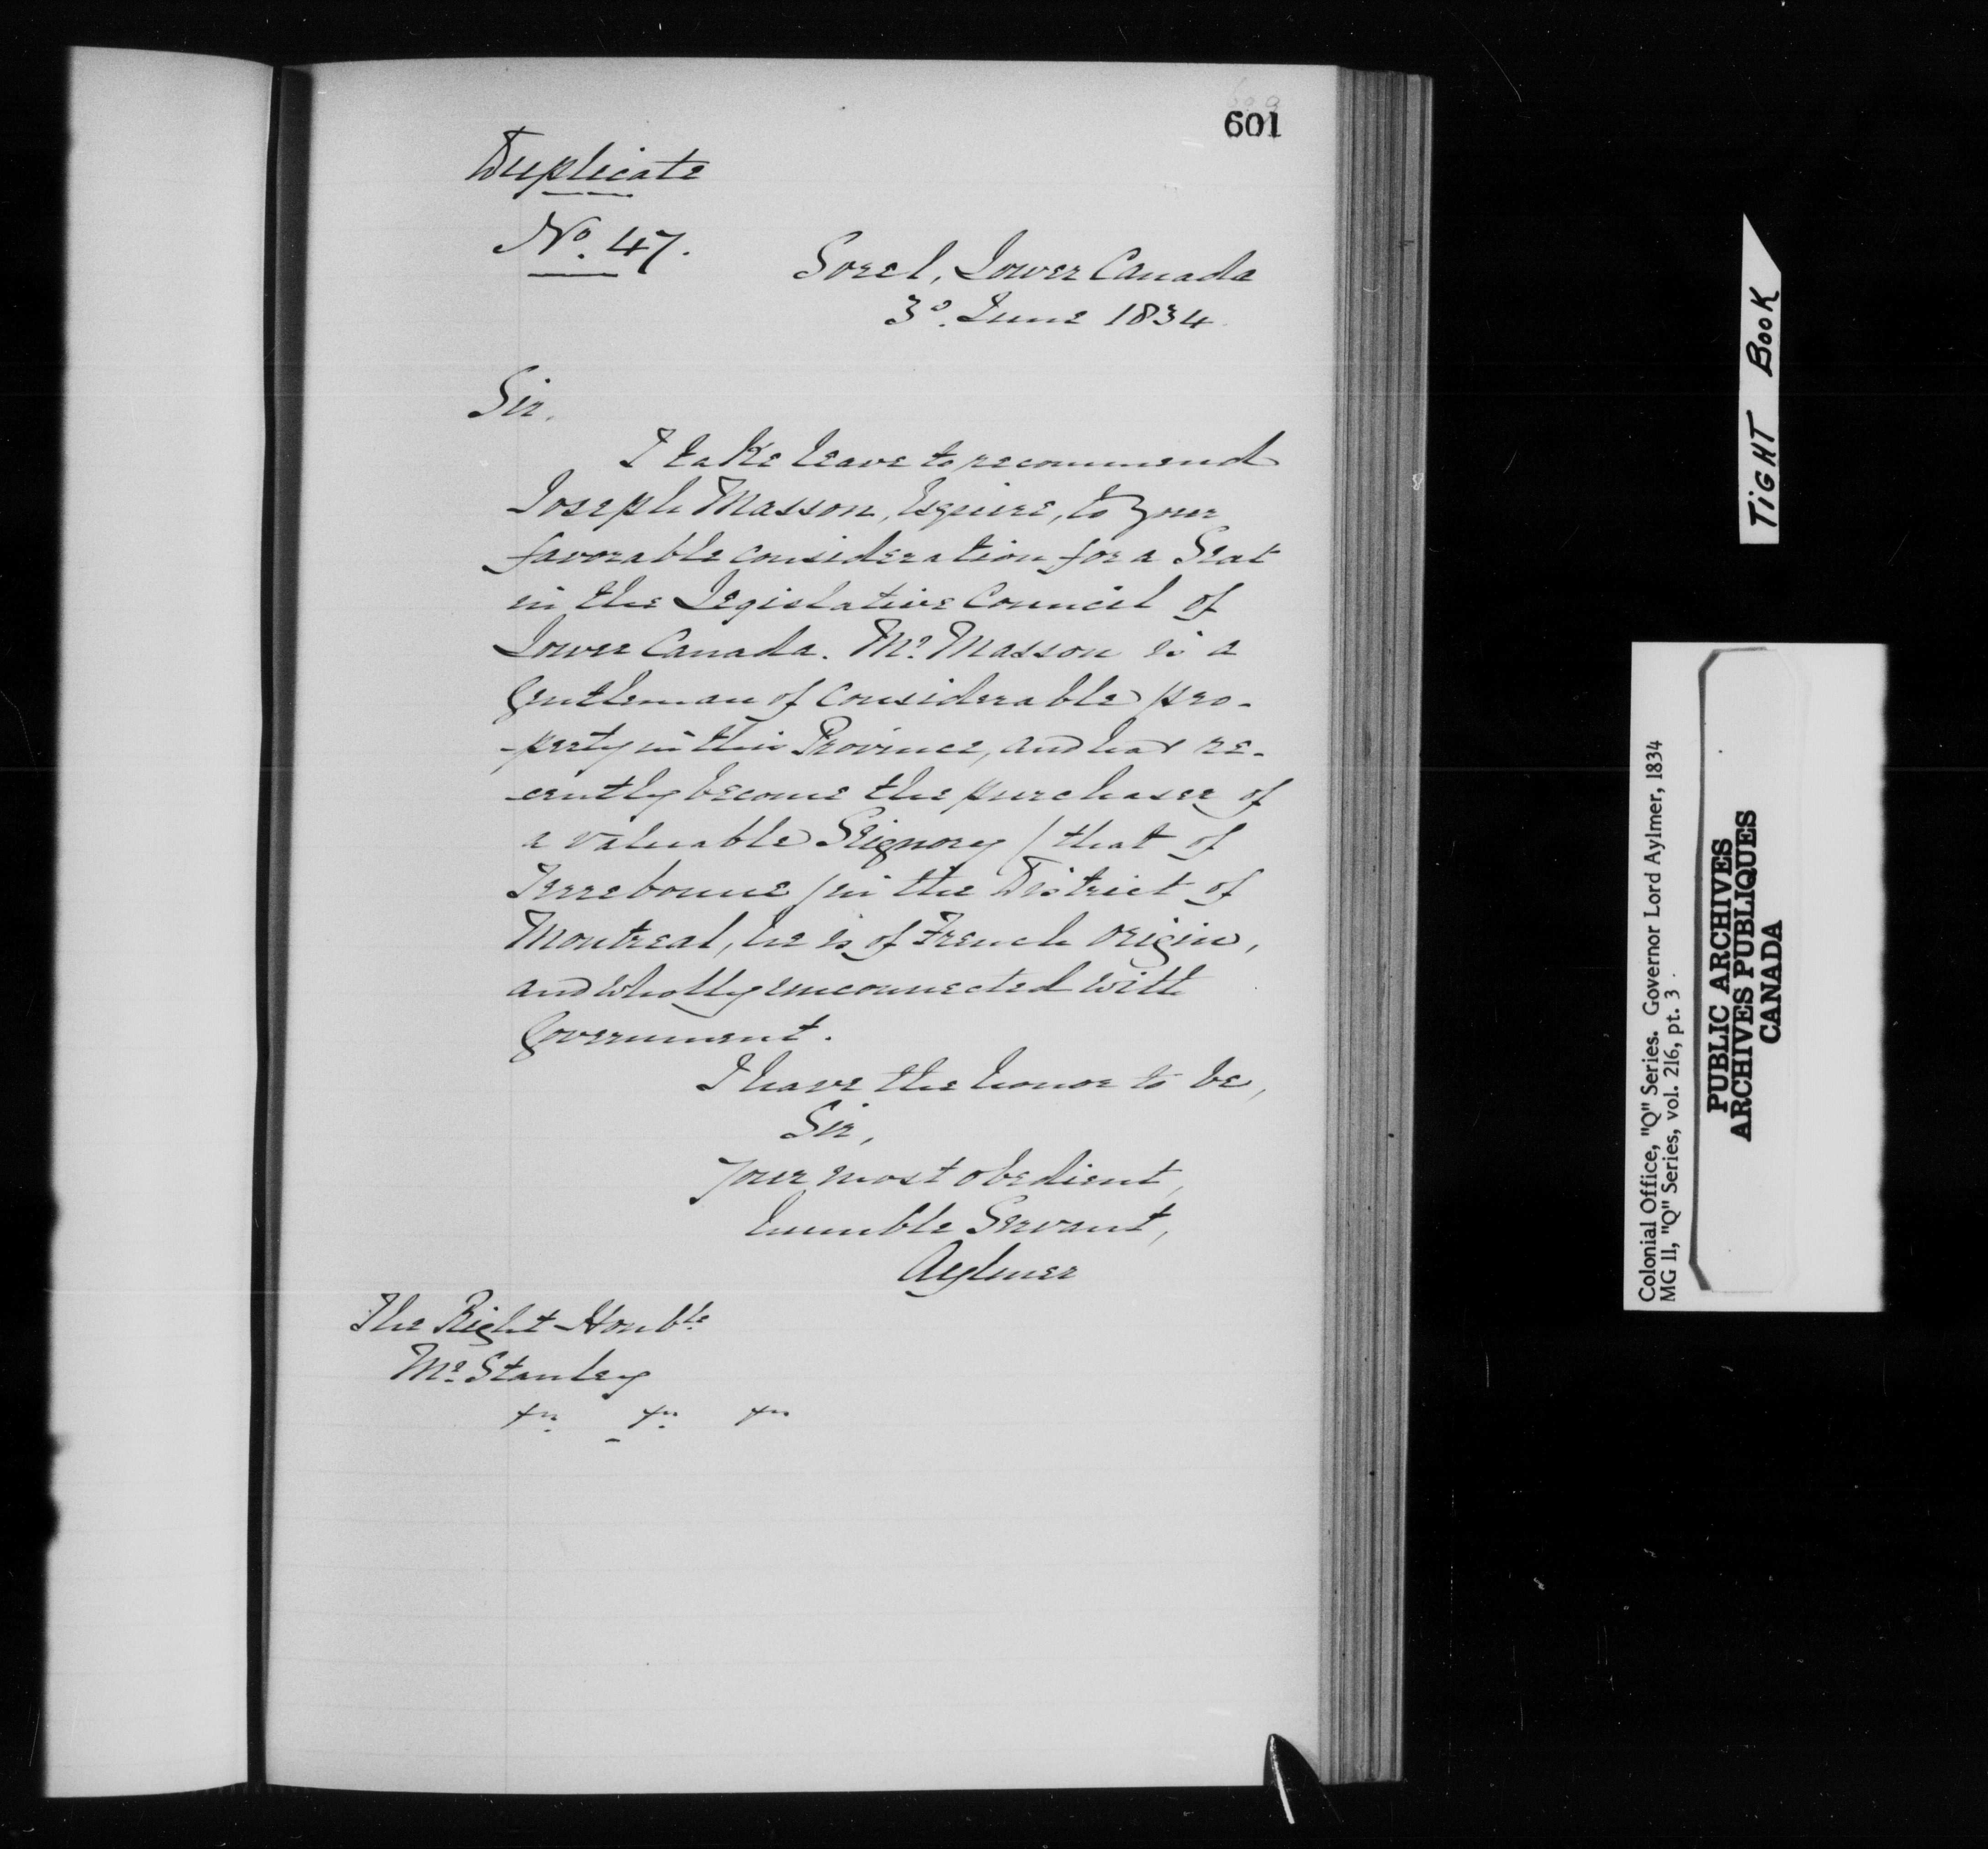 601
Duplicate
No. 47.
Sorel, Lower Canada
3d. June 1834.
Sir,
I take leave to recommend
Joseph Masson, Esquire, to your
favorable consideration for a Seat
in the Legislative Council of
Lower Canada. Mr. Masson is a
Gentleman of considerable pro-
-perty in this Province, and has re-
-cently become the purchaser of
a valuable Seignory / that of
Terrebonne / in the District of
Montreal, he is of French Origin,
and wholly unconnected with
Government.
I have the honor to be,
Sir,
Your most obedient,
humble Servant,
Aylmer
The Right Honble
Mr. Stanley
TiGHT BOOK
Colonial Office, "Q" Series. Governor Lord Aylmer, 1834
MG 11, "Q" Series, vol. 216, pt. 3
PUBLIC ARCHIVES
ARCHIVES PUBLIQUES
CANADA